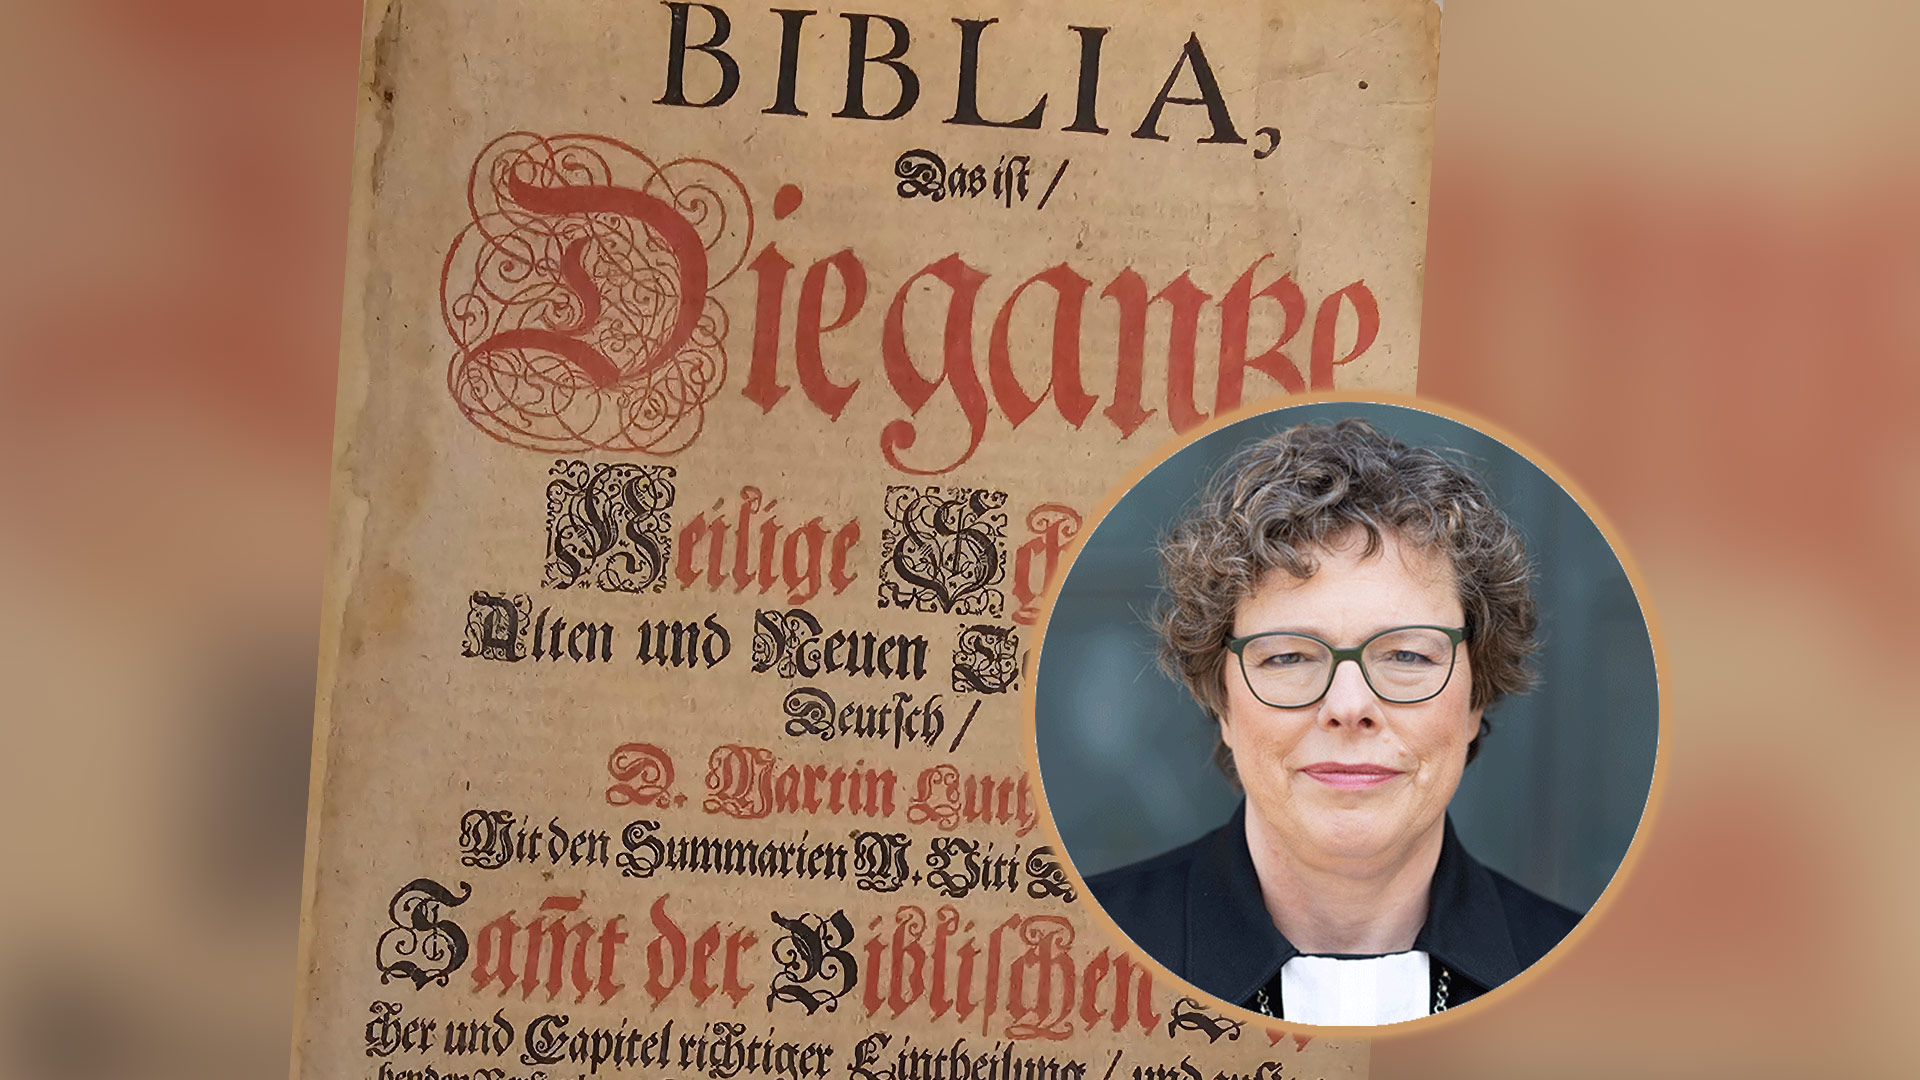 BIBLIA,
Das ist /
Die gantze
Heilige
Alten und Neuen
Deutsch /
D. Martin
Mit den Summarien M. Viti
Sam̃t der Biblischen
cher und Capitel richtiger Eintheilung / und